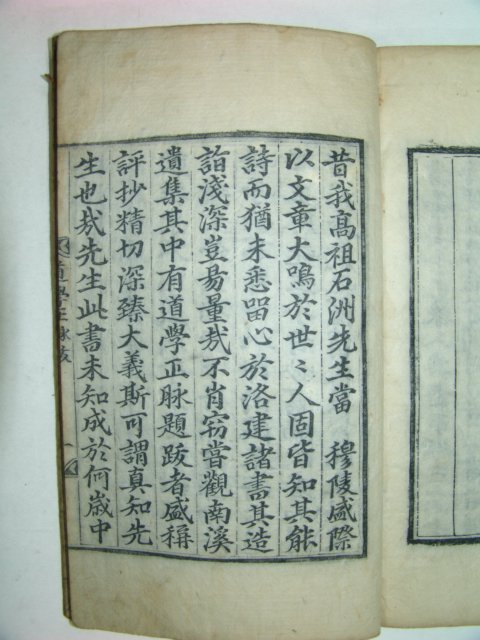 昔我高祖石洲先生當　穆陵盛際
以文章大鳴於世〻人固皆知其能
詩而猶未悉留心於洛建諸書其造
詣淺深豈易量㢤不肖窃嘗觀南溪
遺集其中有道學正脉題跋者盛稱
評抄精切深臻大義斯可謂真知先
生也㢤先生此書未知成於何歲中
道學正脉跋
一